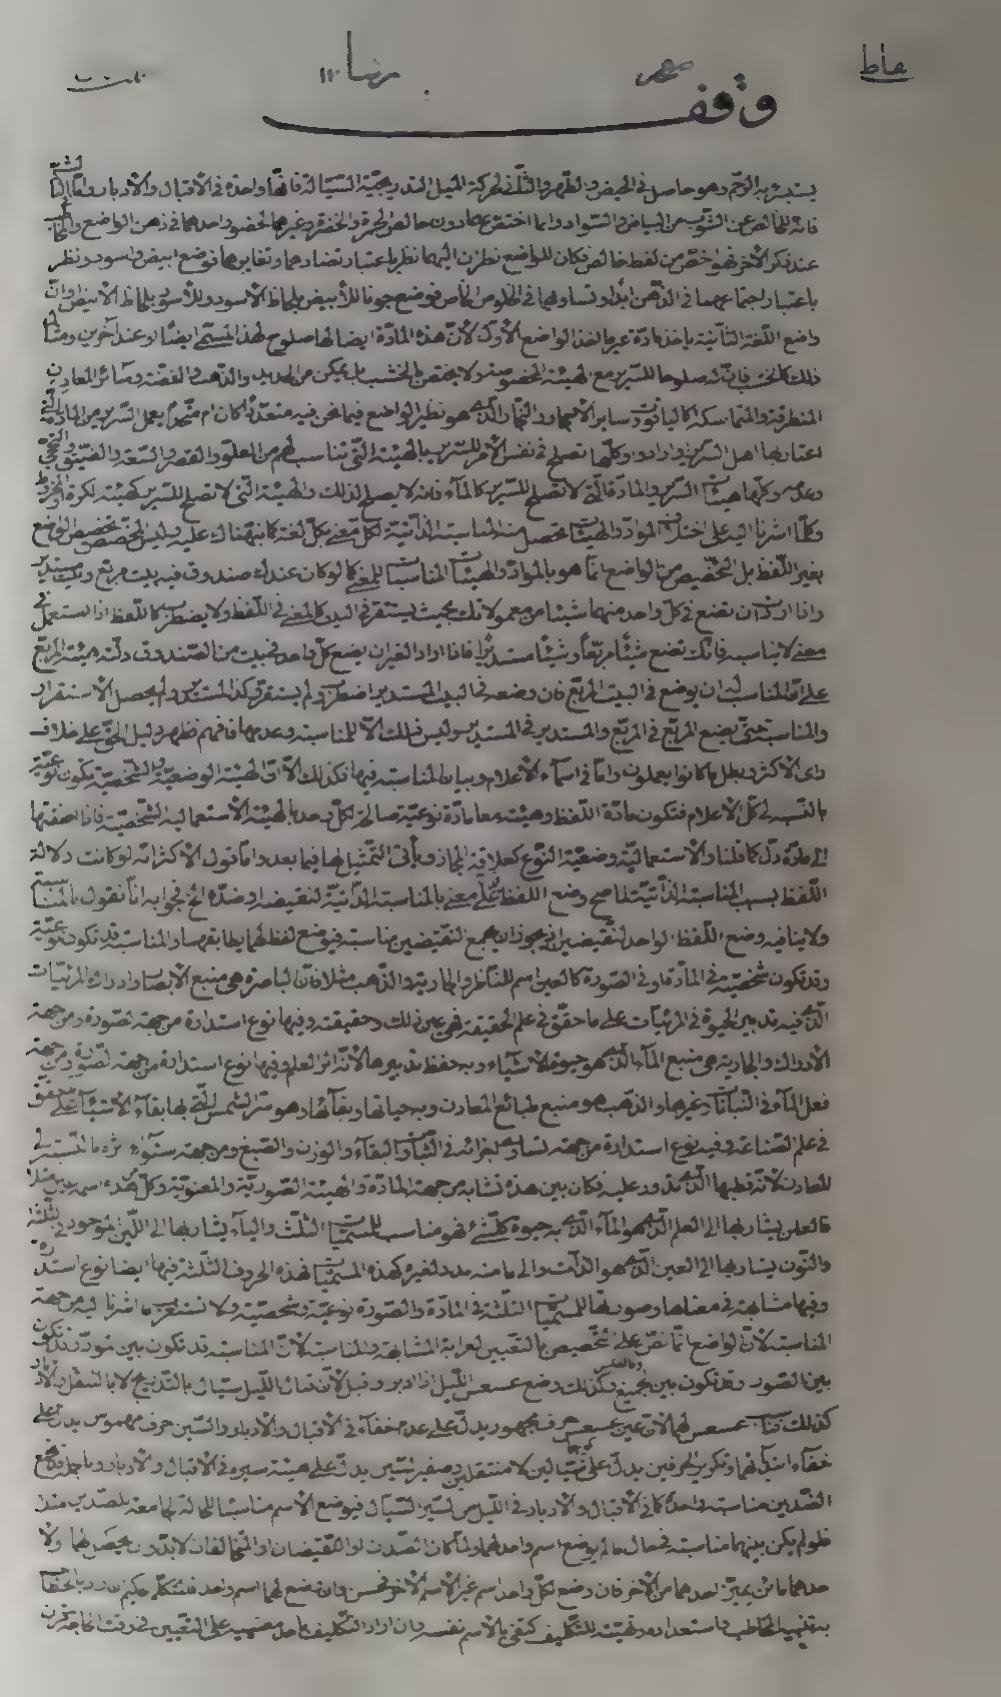 وقف
يستبزبه الرحم وهو حاصل في الحيض والطهر والثاني لحركة الميل التدريجية السيالة فانها واحدة في الاقبال والادبار واما
فانه الخالص عن الشوب من البياض والسواد وانما اختص بهما دون خالص الحمرة والخضرة وغيرهما لحضور احدهما في ذهن الواضع
عند ذكر الآخر فهو اخص من لفظ خالص فكان للواضع نظران اليهما نظر باعتبار تضادهما وتغايرهما فوضع ابيض واسود ونظر
باعتبار اجتماعهما في الذهن ابدا وتساويهما في الخلوص الخاص فوضع جونا للأبيض بلحاظ الاسود وللأسود بلحاظ الابيض او ان
واضع اللغة الثانية ياخذ مادة غير ماخذ الواضع الأول لأن هذه المادة ايضا لها صلوح لهذا المسمى ايضا او عند آخرين ومثال
ذلك كالخشب فان له صلوحا للسرير مع الهيئة المخصوصة ولا يختص بالخشب بل يمكن من الحديد والذهب والفضة وسائر المعادن
المنطرقة والمتماسكة كالياقوت وساير الاحجار والنحاس الذي هو نظير الواضع فيما نحن فيه متعددا كان ام متحدا يعمل السرير من المادة التي
اعتاد بها اهل السرير وارادوه وكلها تصلح في نفس الامر للسرير بالهيئة التي تناسب لهم من العلو والقصر والسعة والضيق
وعدمه وكلها هيئات السرير والمادة التي لا تصلح للسرير كالماء فانه لا يصلح لذلك والهيئة التي لا تصلح للسرير كهيئة الكرة والمخروط
وكلما اشرنا اليه على اختلاف المواد والهيئات تحصل منه المناسبة الذاتية لكل معنى بكل لغة كما نبهناك عليه وليس المخصص تخصيص الواضع
بغير اللفظ بل التخصيص من الواضع انما هو بالمواد والهيئات المناسبات للمعنى كما لو كان عندك صندوق فيه بيت مربع وبيت مستدير
واذا اردت ان تضع في كل واحد منهما شيئا من معمولاتك بحيث يستقر في البيت كالمعنى في اللفظ ولا يضطرب كاللفظ اذا استعمل في
معنى لا يناسبه فانك تضع شيئا مربعا وشيئا مستديرا فاذا اراد الغير ان يضع كل واحد في بيت من الصندوق دلته هيئة المربع
على ان المناسب له ان يوضع في البيت المربع فان وضعه في البيت المستدير اضطرب ولم يستقر وكذا المستدير ولم يحصل الاستقرار
والمناسبة حتى يضع المربع في المربع والمستدير في المستدير وليس ذلك الا للمناسبة وعدمها فافهم فظهر دليل الحق على خلاف
رأي الاكثر وبطل ما كانوا يعملون واما في اسماء الاعلام وبيان المناسبة فيها فكذلك الا ان الهيئة الوضعية والشخصية تكون نوعية
بالنسبة الى كل الاعلام فتكون مادة اللفظ وهيئته معا مادة نوعية صالحة لكل احد بالهيئة الاستعمالية الشخصية فاذا اضفتها
الى مادة دل كما قلنا والاستعمالية وضعية النوع كعلاقة المجاز ويأتي التمثيل لها فيما بعد واما قول الاكثر انه لو كانت دلالة
اللفظ بسبب المناسبة الذاتية لما صح وضع اللفظ الدال على معنى بالمناسبة الذاتية لنقيضه او ضده الخ فجوابه انا نقول بالمناسبة
ولا ينافيه وضع اللفظ الواحد لنقيضين اذ يجوز ان يجمع النقيضين مناسبة فيوضع لفظ لهما يطابقهما والمناسبة قد تكون نوعية
وقد تكون شخصية في المادة او في الصورة كالعين اسم للناظرة والجارية والذهب مثلا فان الباصرة هي منبع الابصار وادراك المرئيات
الذي فيه تدبير الحيوة في المرئيات على ما حقق في علم الحقيقة فهي عين ذلك وحقيقته وفيها نوع استدارة من جهة الصورة ومن جهة
الادراك والجارية هي منبع الماء الذي هو حيوة الاشياء وبه حفظ تدبيرها لانه اثر العلم وفيها نوع استدارة من جهة الصورة ومن جهة
فعل الماء في النباتات وغيرها والذهب هو منبع طبائع المعادن وبه حياتها وبقاؤها وهو سر الشمس التي بها بقاء الاشياء على ما حقق
في علم الصناعة وفيه نوع استدارة من جهة تساوي اجزائه في الثبات والبقاء والوزن والصبغ ومن جهة
للمعادن لانه قطبها الذي تدور عليه فكان بين هذه تشابه من جهة المادة والهيئة الصورية والمعنوية وكل من هذه اسمه عين مثلا
فالعين يشار بها الى العلم الذي هو الماء الذي به حيوة كل شيء فهو مناسب للمسميات الثلث والياء يشار بها الى اللين الموجود في الثلثة
والنون يشار بها الى العين الذي هو الذات والى ما منه مدد لغيره كهذه المسميات فهذه الحروف الثلثة فيها ايضا نوع استدارة
وفيها مشابهة في معناها وصورتها للمسميات الثلثة في المادة والصورة نوعية وشخصية ولا تستغرب ما اشرنا اليه من جهة
المناسبة لأن الواضع انما نص على التخصيص بالتعيين لغرابة المشابهة والمناسبة لأن المناسبة قد تكون بين المواد وقد تكون
بين الصور وقد تكون بين الجميع وبالعكس وكذلك وضع عسعس الليل اذا ادبر وقبل لأن قتال الليل سيال بالتدريج لا بالتنقل والادبار
كذلك فناسب عسعس لهما لأن عين عسعس حرف مجهور يدل على عدم خفاء في الاقبال والادبار والسين حرف مهموس يدل على
خفاء ابتدائهما وتكرير الحرفين يدل على انهما سيالين لا منتقلين وصفير السين يدل على هيئة سيره في الاقبال والادبار وبالجملة فتجمع
الضدين مناسبة واحدة كما في الاقبال والادبار في الليل من السير السيال فيوضع الاسم مناسبا للحالة الجامعة للضدين مثلا
فلو لم يكن بينهما مناسبة في حال ما لم يوضع اسم واحد لهما ولما كان الضدان او النقيضان او المتخالفان لا بد ان
احدهما ما يميز احدهما من الآخر فان وضع لكل واحد اسم غير الاسم الآخر فحسن وان وضع لهما اسم واحد فالمتكلم حكيم
به تنبيه المخاطب واستعداده وتهيئته للتكليف كتفى بالاسم نفسه وان اراد التكليف باحدهما نصب على التعيين في وقت الحاجة قرينة